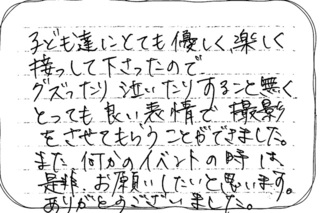 子ども達にとても優しく、楽しく
接っして下さったので
グズったり泣いたりすること無く
とっても良い表情で撮影
をさせてもらうことができました。
また何かのイベントの時は
是非、お願いしたいと思います。
ありがとうございました。